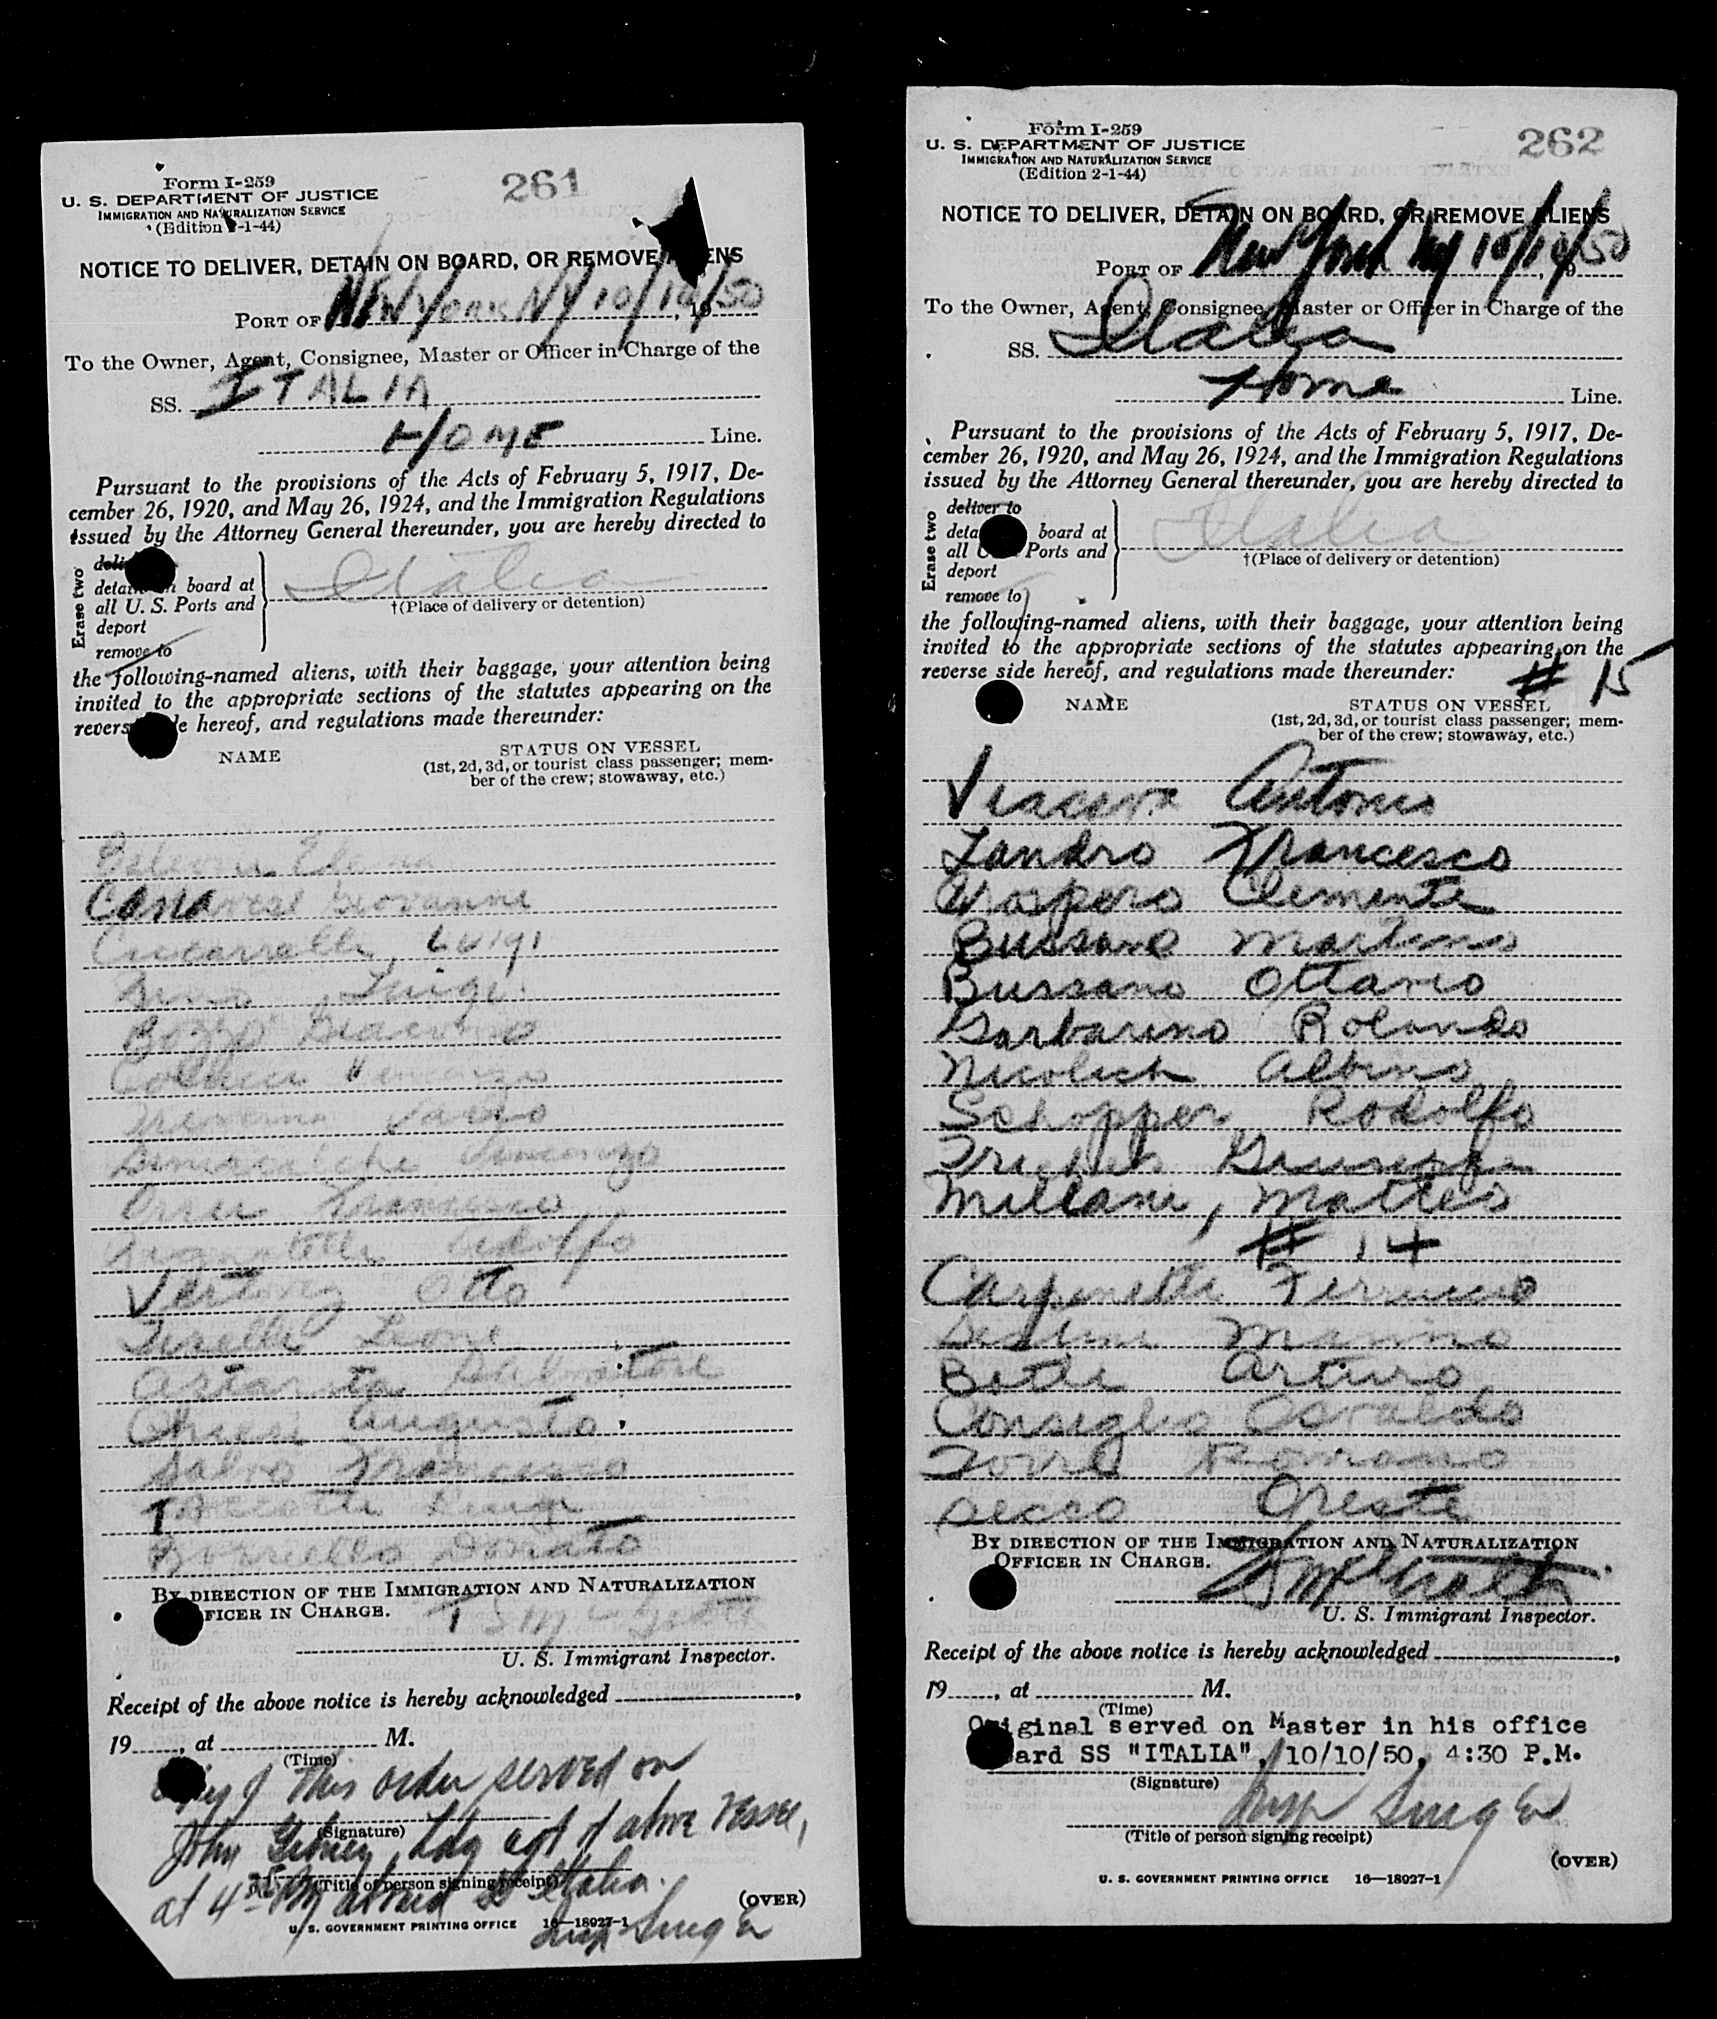 Form I-259
261
U. S. DEPARTMENT OF JUSTICE
IMMIGRATION AND NATURALIZATION SERVICE
(Edition 2-1-44)
NOTICE TO DELIVER, DETAIN ON BOARD, OR REMOVE ALIENS
PORT OF New York NY 10/10/50
To the Owner, Agent, Consignee, Master or Officer in Charge of the
SS. ITALIA
HOME Line.
Pursuant to the provisions of the Acts of February 5, 1917, De-
cember 26, 1920, and May 26, 1924, and the Immigration Regulations
issued by the Attorney General thereunder, you are hereby directed to
Erase two
detain on board at
all U. S. Ports and
deport
remove to
Italia
†(Place of delivery or detention)
the following-named aliens, with their baggage, your attention being
invited to the appropriate sections of the statutes appearing on the
reverse side hereof, and regulations made thereunder:
NAME STATUS ON VESSEL
(1st, 2d, 3d, or tourist class passenger; mem-
ber of the crew; stowaway, etc.)
Elena
Canavese Giovanni
Cuccarelli, Luigi
Luigi
Bozzo Giacomo
Colucci Vincenzo
Vincenzo
Orru Francesco
Adolfo
Otto
Leone
Astarita Salvatore
Augusto
Salvo Francesco
Luigi
Borriello Donato
BY DIRECTION OF THE IMMIGRATION AND NATURALIZATION
OFFICER IN CHARGE.
U. S. Immigrant Inspector.
Receipt of the above notice is hereby acknowledged
19 , at M.
(Time)
Copy of this order served on
(Signature)
John Gibney, of above vessel,
at 4 PM aboard SS Italia.
(Title of person signing receipt)
(OVER)
U. S. GOVERNMENT PRINTING OFFICE 16—18927-1
Insp Singer
Form I-259
262
U. S. DEPARTMENT OF JUSTICE
IMMIGRATION AND NATURALIZATION SERVICE
(Edition 2-1-44)
NOTICE TO DELIVER, DETAIN ON BOARD, OR REMOVE ALIENS
PORT OF New York NY 10/10/50
To the Owner, Agent, Consignee, Master or Officer in Charge of the
SS. Italia
Home Line.
Pursuant to the provisions of the Acts of February 5, 1917, De-
cember 26, 1920, and May 26, 1924, and the Immigration Regulations
issued by the Attorney General thereunder, you are hereby directed to
Erase two
deliver to
detain on board at
all U. S. Ports and
deport
remove to
Italia
†(Place of delivery or detention)
the following-named aliens, with their baggage, your attention being
invited to the appropriate sections of the statutes appearing on the
reverse side hereof, and regulations made thereunder:
# 15
NAME STATUS ON VESSEL
(1st, 2d, 3d, or tourist class passenger; mem-
ber of the crew; stowaway, etc.)
Antonio
Landro Francesco
Prospero Clemente
Bussano Martino
Bussano Ottavio
Garbarino Rolando
Nicolich Albino
Schopper Rodolfo
Giuseppe
Millani, Matteo
# 14
Carpinetti Ferruccio
Marino
Arturo
Consiglio Osvaldo
Torre Romano
Secco Oreste
BY DIRECTION OF THE IMMIGRATION AND NATURALIZATION
OFFICER IN CHARGE.
U. S. Immigrant Inspector.
Receipt of the above notice is hereby acknowledged
19 , at M.
(Time)
Original served on Master in his office
board SS "ITALIA", 10/10/50, 4:30 P.M.
(Signature)
Insp Singer
(Title of person signing receipt)
(OVER)
U. S. GOVERNMENT PRINTING OFFICE 16—18927-1